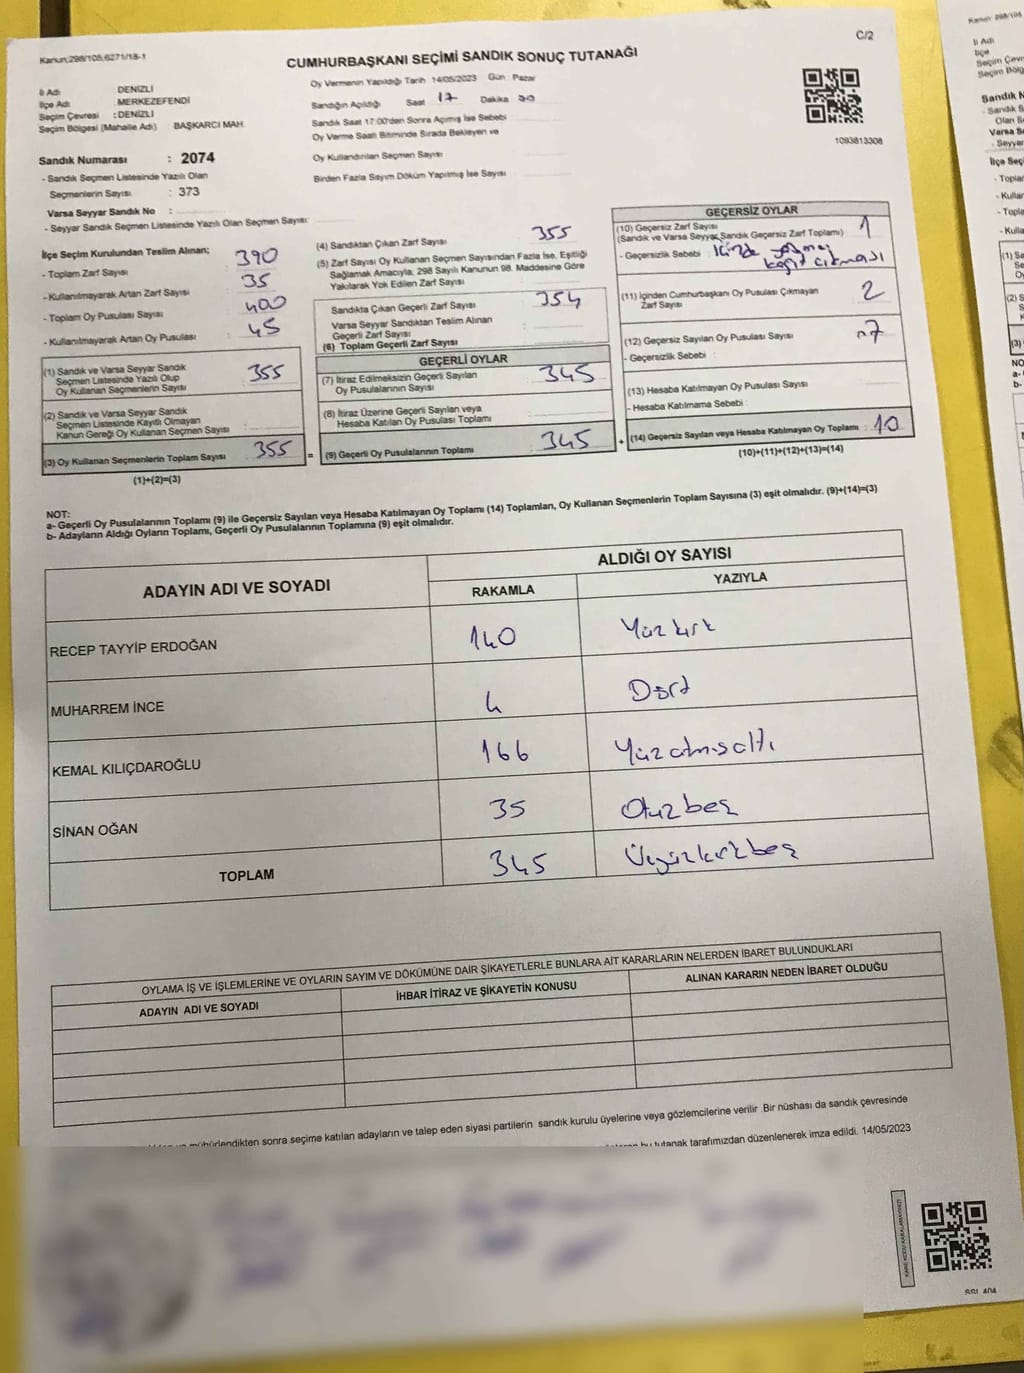 Kanun;298/105;6271/18-1
C/2
CUMHURBAŞKANI SEÇİMİ SANDIK SONUÇ TUTANAĞI
İl Adı DENİZLİ
İlçe Adı MERKEZEFENDİ
Seçim Çevresi : DENİZLİ
Seçim Bölgesi (Mahalle Adı) BAŞKARCI MAH.
Oy Vermenin Yapıldığı Tarih 14/05/2023 Gün : Pazar
Sandığın Açıldığı Saat 17 Dakika
Sandık Saat 17:00'den Sonra Açılmış İse Sebebi
Oy Verme Saati Bitiminde Sırada Bekleyen ve
Oy Kullandırılan Seçmen Sayısı
Birden Fazla Sayım Döküm Yapılmış İse Sayısı
1093813308
Sandık Numarası : 2074
- Sandık Seçmen Listesinde Yazılı Olan
Seçmenlerin Sayısı : 373
Varsa Seyyar Sandık No :
- Seyyar Sandık Seçmen Listesinde Yazılı Olan Seçmen Sayısı:
İlçe Seçim Kurulundan Teslim Alınan;
- Toplam Zarf Sayısı 390
- Kullanılmayarak Artan Zarf Sayısı 35
- Toplam Oy Pusulası Sayısı 400
- Kullanılmayarak Artan Oy Pusulası 45
(1) Sandık ve Varsa Seyyar Sandık
Seçmen Listesinde Yazılı Olup
Oy Kullanan Seçmenlerin Sayısı : 355
(2) Sandık ve Varsa Seyyar Sandık
Seçmen Listesinde Kayıtlı Olmayan
Kanun Gereği Oy Kullanan Seçmen Sayısı :
(3) Oy Kullanan Seçmenlerin Toplam Sayısı 355
(1)+(2)=(3)
(4) Sandıktan Çıkan Zarf Sayısı 355
(5) Zarf Sayısı Oy Kullanan Seçmen Sayısından Fazla İse, Eşitliği
Sağlamak Amacıyla, 298 Sayılı Kanunun 98. Maddesine Göre
Yakılarak Yok Edilen Zarf Sayısı
Sandıkta Çıkan Geçerli Zarf Sayısı : 354
Varsa Seyyar Sandıktan Teslim Alınan
Geçerli Zarf Sayısı
(6) Toplam Geçerli Zarf Sayısı
GEÇERLİ OYLAR
(7) İtiraz Edilmeksizin Geçerli Sayılan
Oy Pusulalarının Sayısı : 345
(8) İtiraz Üzerine Geçerli Sayılan veya
Hesaba Katılan Oy Pusulası Toplamı
= (9) Geçerli Oy Pusulalarının Toplamı : 345
GEÇERSİZ OYLAR
(10) Geçersiz Zarf Sayısı
(Sandık ve Varsa Seyyar Sandık Geçersiz Zarf Toplamı) 1
- Geçersizlik Sebebi : çıkması
(11) İçinden Cumhurbaşkanı Oy Pusulası Çıkmayan
Zarf Sayısı 2
(12) Geçersiz Sayılan Oy Pusulası Sayısı 7
- Geçersizlik Sebebi :
(13) Hesaba Katılmayan Oy Pusulası Sayısı
- Hesaba Katılmama Sebebi :
+ (14) Geçersiz Sayılan veya Hesaba Katılmayan Oy Toplamı : 10
(10)+(11)+(12)+(13)=(14)
NOT:
a- Geçerli Oy Pusulalarının Toplamı (9) ile Geçersiz Sayılan veya Hesaba Katılmayan Oy Toplamı (14) Toplamları, Oy Kullanan Seçmenlerin Toplam Sayısına (3) eşit olmalıdır. (9)+(14)=(3)
b- Adayların Aldığı Oyların Toplamı, Geçerli Oy Pusulalarının Toplamına (9) eşit olmalıdır.
ADAYIN ADI VE SOYADI ALDIĞI OY SAYISI
RAKAMLA YAZIYLA
RECEP TAYYİP ERDOĞAN 140 Yüzkırk
MUHARREM İNCE 4 Dört
KEMAL KILIÇDAROĞLU 166 Yüzatmışaltı
SİNAN OĞAN 35 Otuzbeş
TOPLAM 345 Üçyüzkırkbeş
OYLAMA İŞ VE İŞLEMLERİNE VE OYLARIN SAYIM VE DÖKÜMÜNE DAİR ŞİKAYETLERLE BUNLARA AİT KARARLARIN NELERDEN İBARET BULUNDUKLARI
ADAYIN ADI VE SOYADI İHBAR İTİRAZ VE ŞİKAYETİN KONUSU ALINAN KARARIN NEDEN İBARET OLDUĞU
mühürlendikten sonra seçime katılan adayların ve talep eden siyasi partilerin sandık kurulu üyelerine veya gözlemcilerine verilir .Bir nüshası da sandık çevresinde
bu tutanak tarafımızdan düzenlenerek imza edildi. 14/05/2023